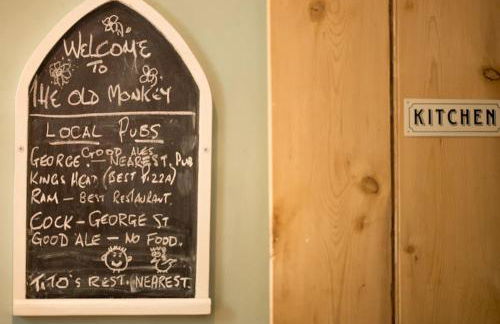 WELCOME
TO
THE OLD MONKEY
LOCAL PUBS
GOOD ALES
GEORGE - NEAREST, PUB
KINGS HEAD (BEST PIZZA)
RAM - BEST RESTAURANT.
COCK - GEORGE ST
GOOD ALE - NO FOOD.
TITO'S REST. NEAREST.
KITCHEN